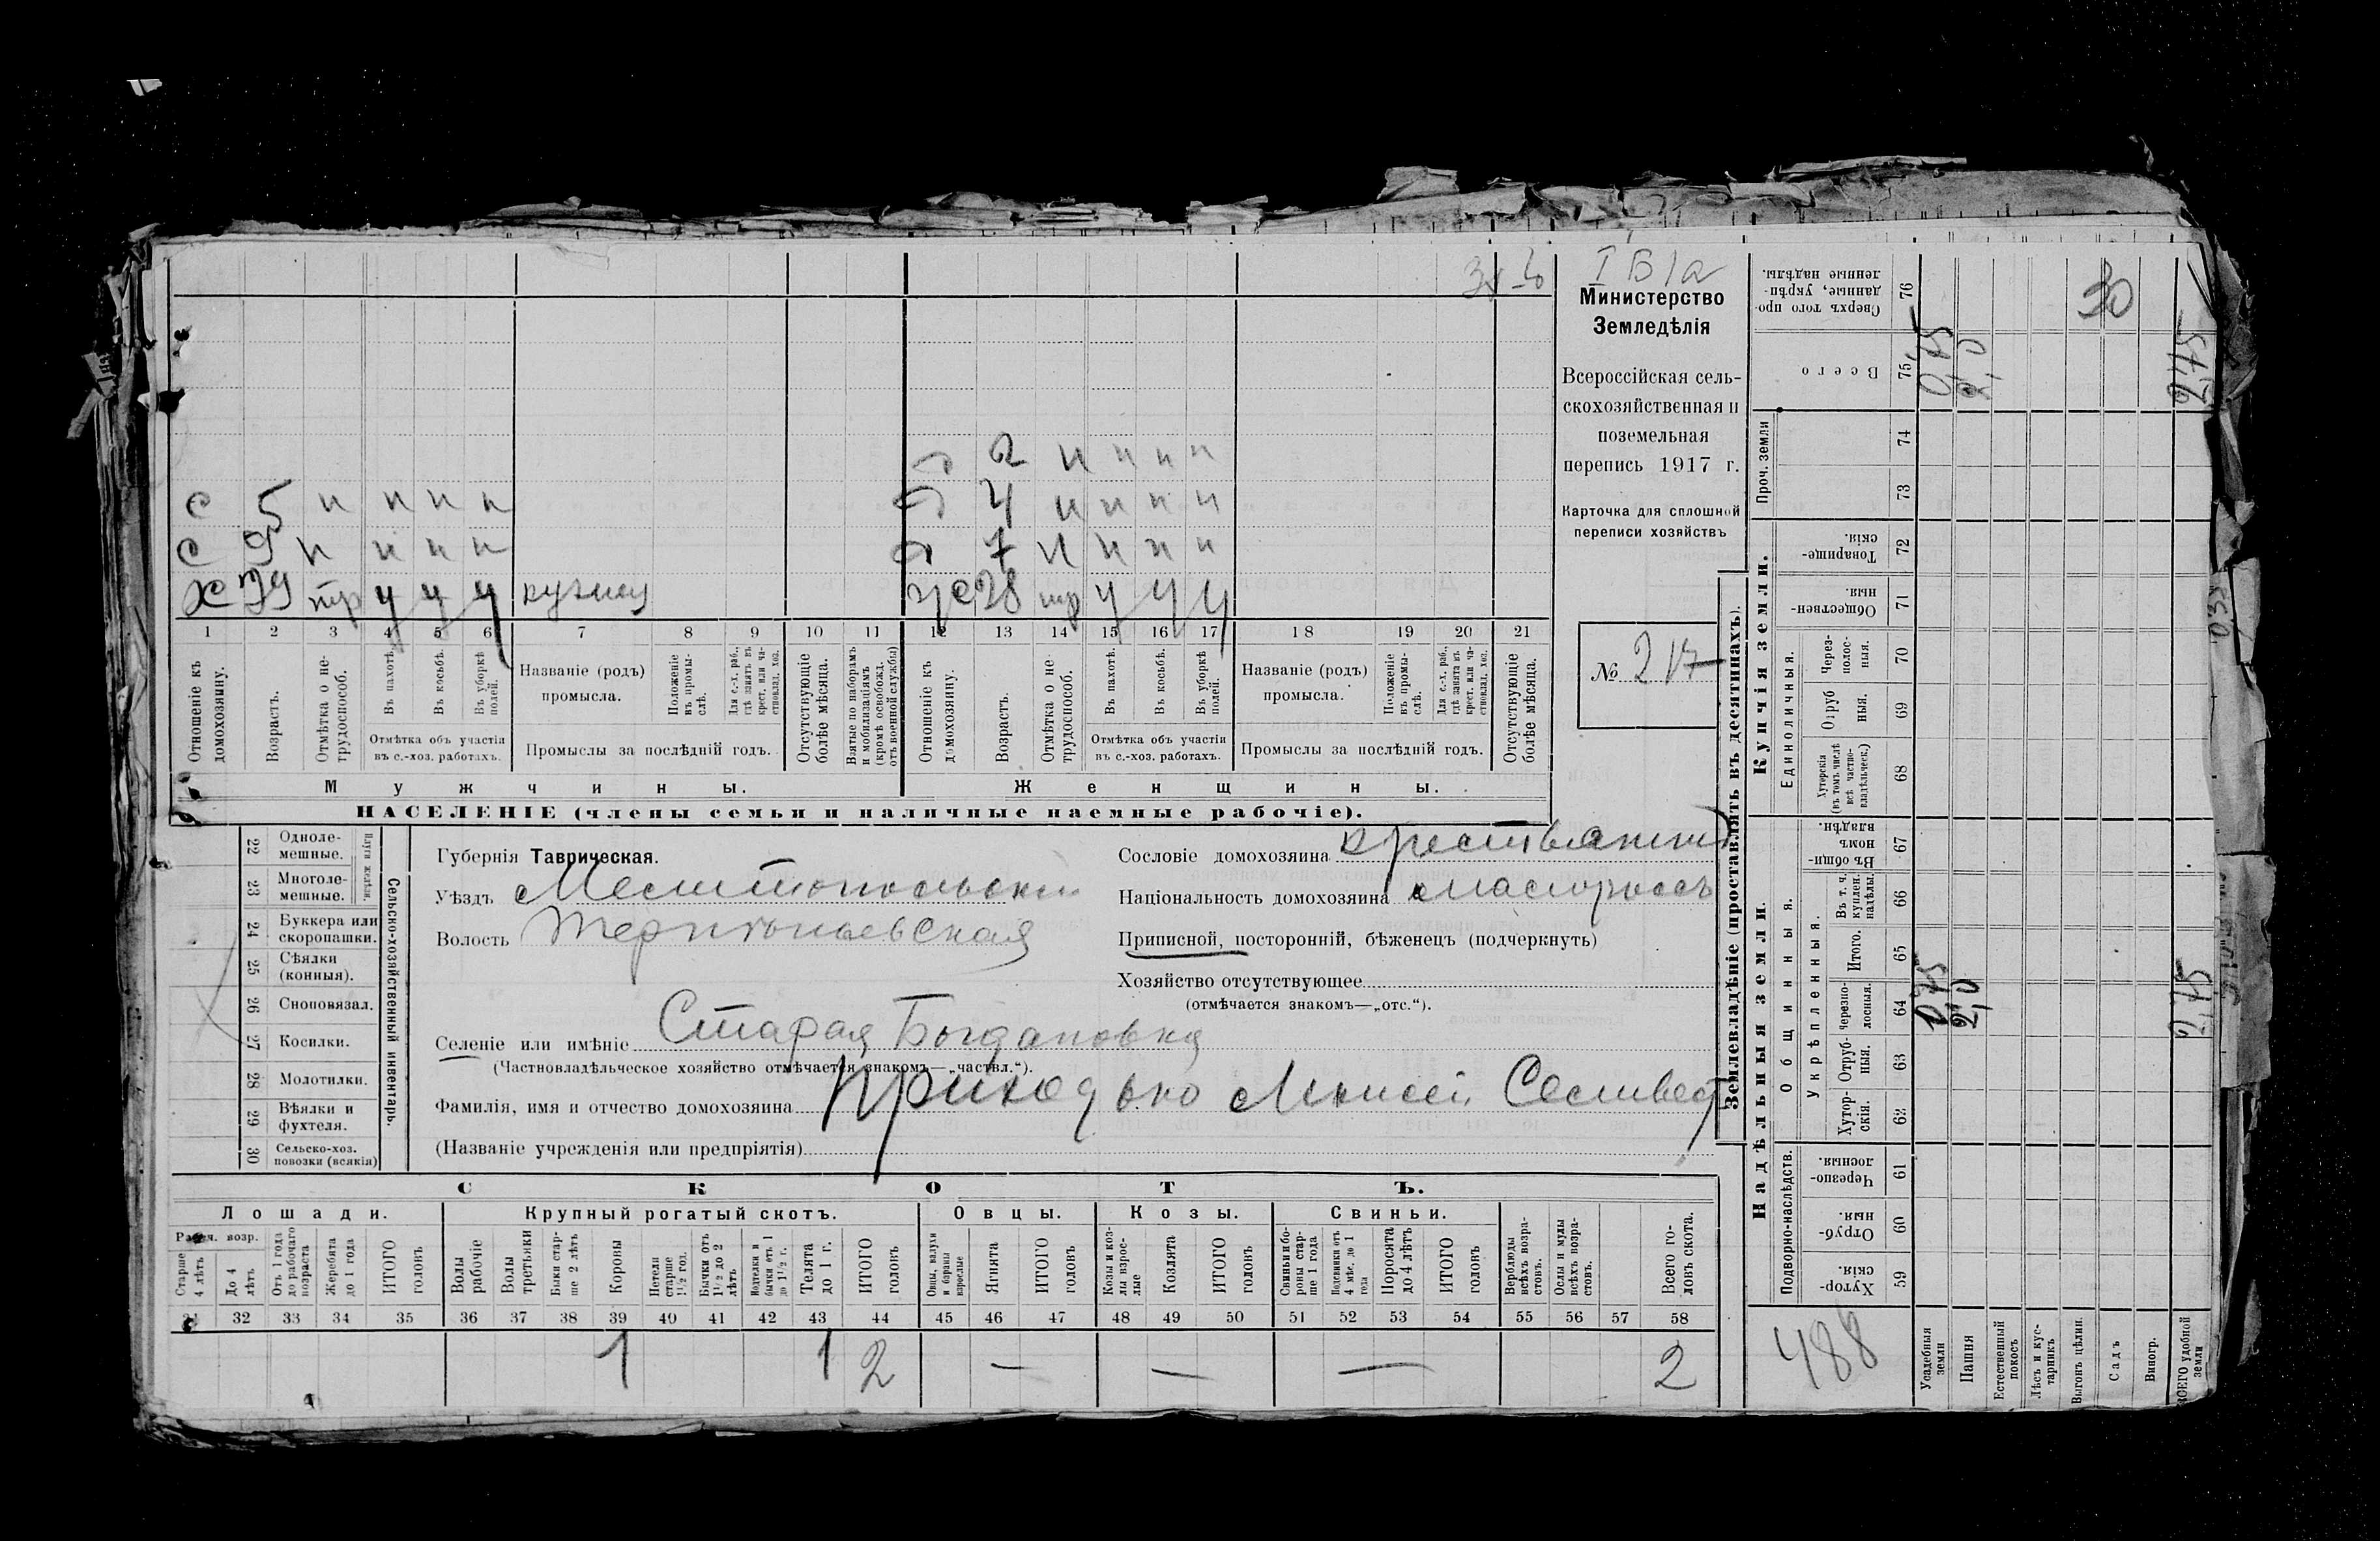 I В 1а
Министерство
Земледѣлія
Всероссійская сель-
скохозяйственная и
поземельная
перепись 1917 г.
Карточка для сплошной
переписи хозяйствъ
№ 217
д 2 н н н н
с 5 н н н н
д 4 н н н н
с 9 н н н н
д 7 н н н н
х 39 тр у у у
ж 38 тр у у у
1 2 3 4 5 6 7 8 9 10 11 12 13 14 15 16 17 18 19 20 21
Отношеніе къ домохозяину.
Возрастъ.
Отмѣтка о не-трудоспособ.
Въ пахотѣ.
Въ косьбѣ.
Въ уборкѣ полей.
Отмѣтка объ участіи
въ с.-хоз. работахъ.
Названіе (родъ)
промысла.
Положеніе въ промы-слѣ.
Для с.-х. раб., гдѣ занятъ въ крест. или ча-стновлад. хоз.
Промыслы за послѣдній годъ.
Отсутствующіе болѣе мѣсяца.
Взятые по наборамъ и мобилизаціямъ (кромѣ освобожд. отъ военной службы)
Отношеніе къ домохозяину.
Возрастъ.
Отмѣтка о не-трудоспособ.
Въ пахотѣ.
Въ косьбѣ.
Въ уборкѣ полей.
Отмѣтка объ участіи
въ с.-хоз. работахъ.
Названіе (родъ)
промысла.
Положеніе въ промы-слѣ.
Для с.-х. раб., гдѣ занятъ въ крест. или ча-стновлад. хоз.
Промыслы за послѣдній годъ.
Отсутствующіе болѣе мѣсяца.
Мужчины.
Женщины.
НАСЕЛЕНІЕ (члены семьи и наличные наемные рабочіе).
22 Одноле-мешные.
23 Многоле-мешные.
Плуги желѣзн.
24 Буккера или скоропашки.
25 Сѣялки (конныя).
26 Сноповязал.
27 Косилки.
28 Молотилки.
29 Вѣялки и фухтеля.
30 Сельско-хоз. повозки (всякія)
Сельско-хозяйственный инвентарь.
Губернія Таврическая.
Уѣздъ Мелитопольскій
Волость Терпѣньевская
Селеніе или имѣніе Старая Богдановка
(Частновладѣльческое хозяйство отмѣчается знакомъ—„частвл.“).
Фамилія, имя и отчество домохозяина Приходько Моисей Селивест
(Названіе учрежденія или предпріятія)
Сословіе домохозяина крестьянинъ
Національность домохозяина малороссъ
Приписной, посторонній, бѣженецъ (подчеркнуть)
Хозяйство отсутствующее
(отмѣчается знакомъ—„отс.“).
СКОТЪ.
Лошади.
Крупный рогатый скотъ.
Овцы.
Козы.
Свиньи.
Рабоч. возр.
Старше 4 лѣтъ
До 4 лѣтъ
Отъ 1 года до рабочаго возраста
Жеребята до 1 года
ИТОГО головъ
Волы рабочіе
Волы третьяки
Быки стар-ше 2 лѣтъ
Коровы
Нетели старше 1½ год.
Бычки отъ 1½ до 2 лѣтъ
Подтелки и бычки отъ 1 до 1½ г.
Телята до 1 г.
ИТОГО головъ
Овцы, валухи и бараны взрослые
Ягнята
ИТОГО головъ
Козы и коз-лы взрос-лые
Козлята
ИТОГО головъ
Свиньи и бо-ровы стар-ше 1 года
Подсвинки отъ 4 мѣс. до 1 года
Поросята до 4 лѣтъ
ИТОГО головъ
Верблюды всѣхъ возра-стовъ.
Ослы и мулы всѣхъ возра-стовъ.
Всего го-ловъ скота.
31 32 33 34 35 36 37 38 39 40 41 42 43 44 45 46 47 48 49 50 51 52 53 54 55 56 57 58
1 1 2 — — — 2
Землевладѣніе (проставлять въ десятинахъ).
Сверхъ того про-данные, укрѣп-ленные надѣлы. 76
30
Всего 75
0,75 2,0
Проч. земли
74
73
Купчія земли.
Товарище-скія. 72
Обществен-ныя. 71
Единоличныя.
Через-полос-ныя. 70
Отруб-ныя. 69
Хуторскія (въ томъ числѣ всѣ частно-владѣльческ.) 68
Надѣльныя земли.
Общинныя.
Въ общин-номъ владѣн. 67
Укрѣпленныя.
Въ т. ч. куплен. надѣлы. 66
Итого. 65
Черезпо-лосныя. 64
0,75 2,0
Отруб-ныя. 63
Хутор-скія. 62
Подворно-наслѣдств.
Черезпо-лосныя. 61
Отруб-ныя. 60
Хутор-скія. 59
488
Усадебныя земли
Пашня
Естественный покосъ
Лѣсъ и кус-тарникъ
Выгонъ цѣлин.
Садъ
Виногр.
ВСЕГО удобной земли